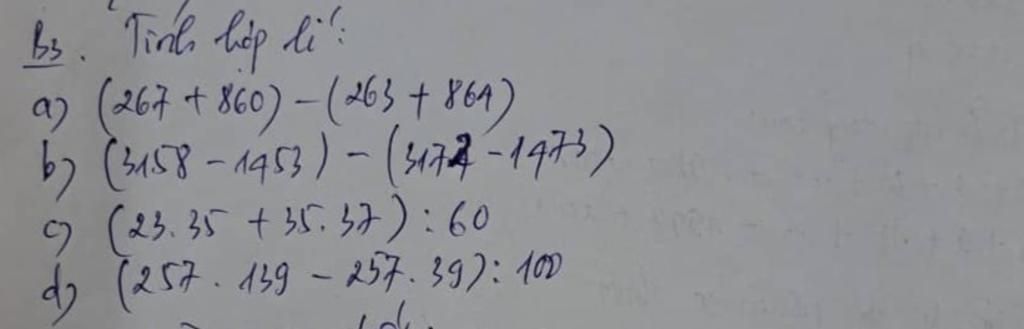 B3. Tính hợp lí:
a) (267 + 860) - (263 + 864)
b) (3158 - 1453) - (3172 - 1473)
c) (23.35 + 35.37) : 60
d) (257 . 139 - 257 . 39) : 100